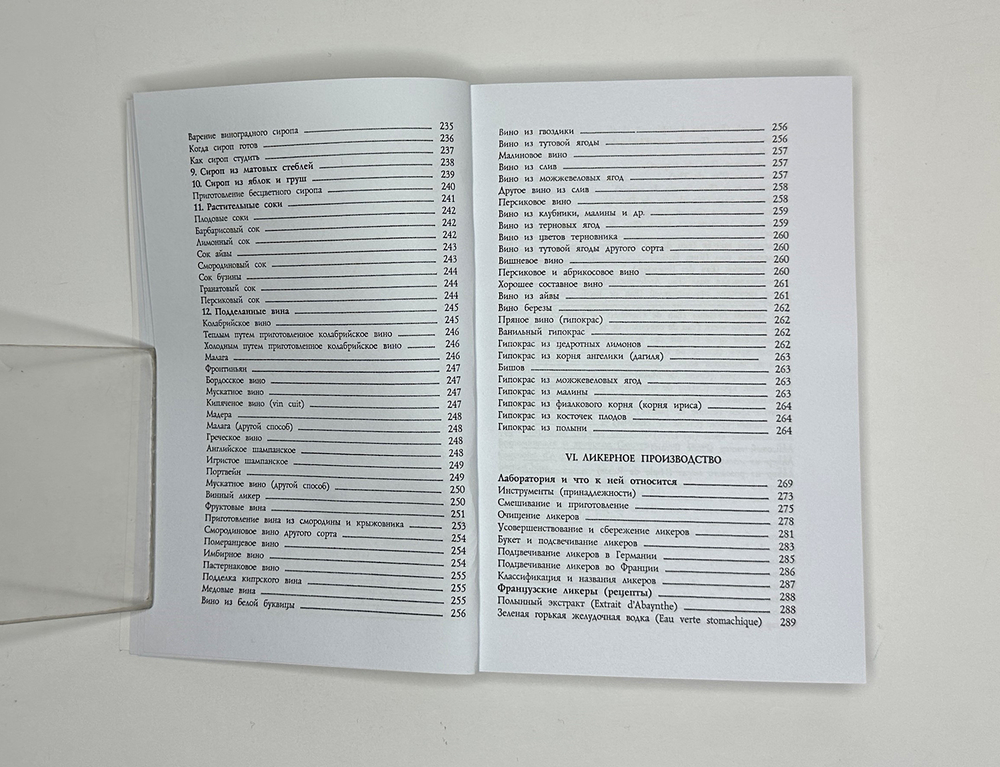 Варение виноградного сиропа 235
Когда сироп готов 236
Как сироп студить 237
9. Сироп из матовых стеблей 238
10. Сироп из яблок и груш 239
Приготовление бесцветного сиропа 240
11. Растительные соки 241
Плодовые соки 242
Барбарисовый сок 242
Лимонный сок 242
Сок айвы 243
Смородиновый сок 243
Сок бузины 244
Гранатовый сок 244
Персиковый сок 244
12. Подделанные вина 245
Колабрийское вино 245
Теплым путем приготовленное колабрийское вино 246
Холодным путем приготовленное колабрийское вино 246
Малага 246
Фронтиньян 247
Бордосское вино 247
Мускатное вино 247
Кипяченое вино (vin cuit) 247
Мадера 248
Малага (другой способ) 248
Греческое вино 248
Английское шампанское 248
Игристое шампанское 249
Портвейн 249
Мускатное вино (другой способ) 250
Винный ликер 250
Фруктовые вина 251
Приготовление вина из смородины и крыжовника 253
Смородиновое вино другого сорта 254
Померанцевое вино 254
Имбирное вино 254
Пастернаковое вино 255
Подделка кипрского вина 255
Медовые вина 255
Вино из белой буквицы 256
Вино из гвоздики 256
Вино из тутовой ягоды 256
Малиновое вино 257
Вино из слив 257
Вино из можжевеловых ягод 257
Другое вино из слив 258
Персиковое вино 258
Вино из клубники, малины и др. 259
Вино из терновых ягод 259
Вино из цветов терновника 260
Вино из тутовой ягоды другого сорта 260
Вишневое вино 260
Персиковое и абрикосовое вино 260
Хорошее составное вино 261
Вино из айвы 261
Вино березы 262
Пряное вино (гипокрас) 262
Ванильный гипокрас 262
Гипокрас из цедротных лимонов 262
Гипокрас из корня ангелики (дагиля) 263
Бишов 263
Гипокрас из можжевеловых ягод 263
Гипокрас из малины 263
Гипокрас из фиалкового корня (корня ириса) 264
Гипокрас из косточек плодов 264
Гипокрас из полыни 264
VI. ЛИКЕРНОЕ ПРОИЗВОДСТВО
Лаборатория и что к ней относится 269
Инструменты (принадлежности) 273
Смешивание и приготовление 275
Очищение ликеров 278
Усовершенствование и сбережение ликеров 281
Букет и подсвечивание ликеров 283
Подцвечивание ликеров в Германии 285
Подцвечивание ликеров во Франции 286
Классификация и названия ликеров 287
Французские ликеры (рецепты) 288
Полынный экстракт (Extrait d'Abaynthe) 288
Зеленая горькая желудочная водка (Eau verte stomachique) 289